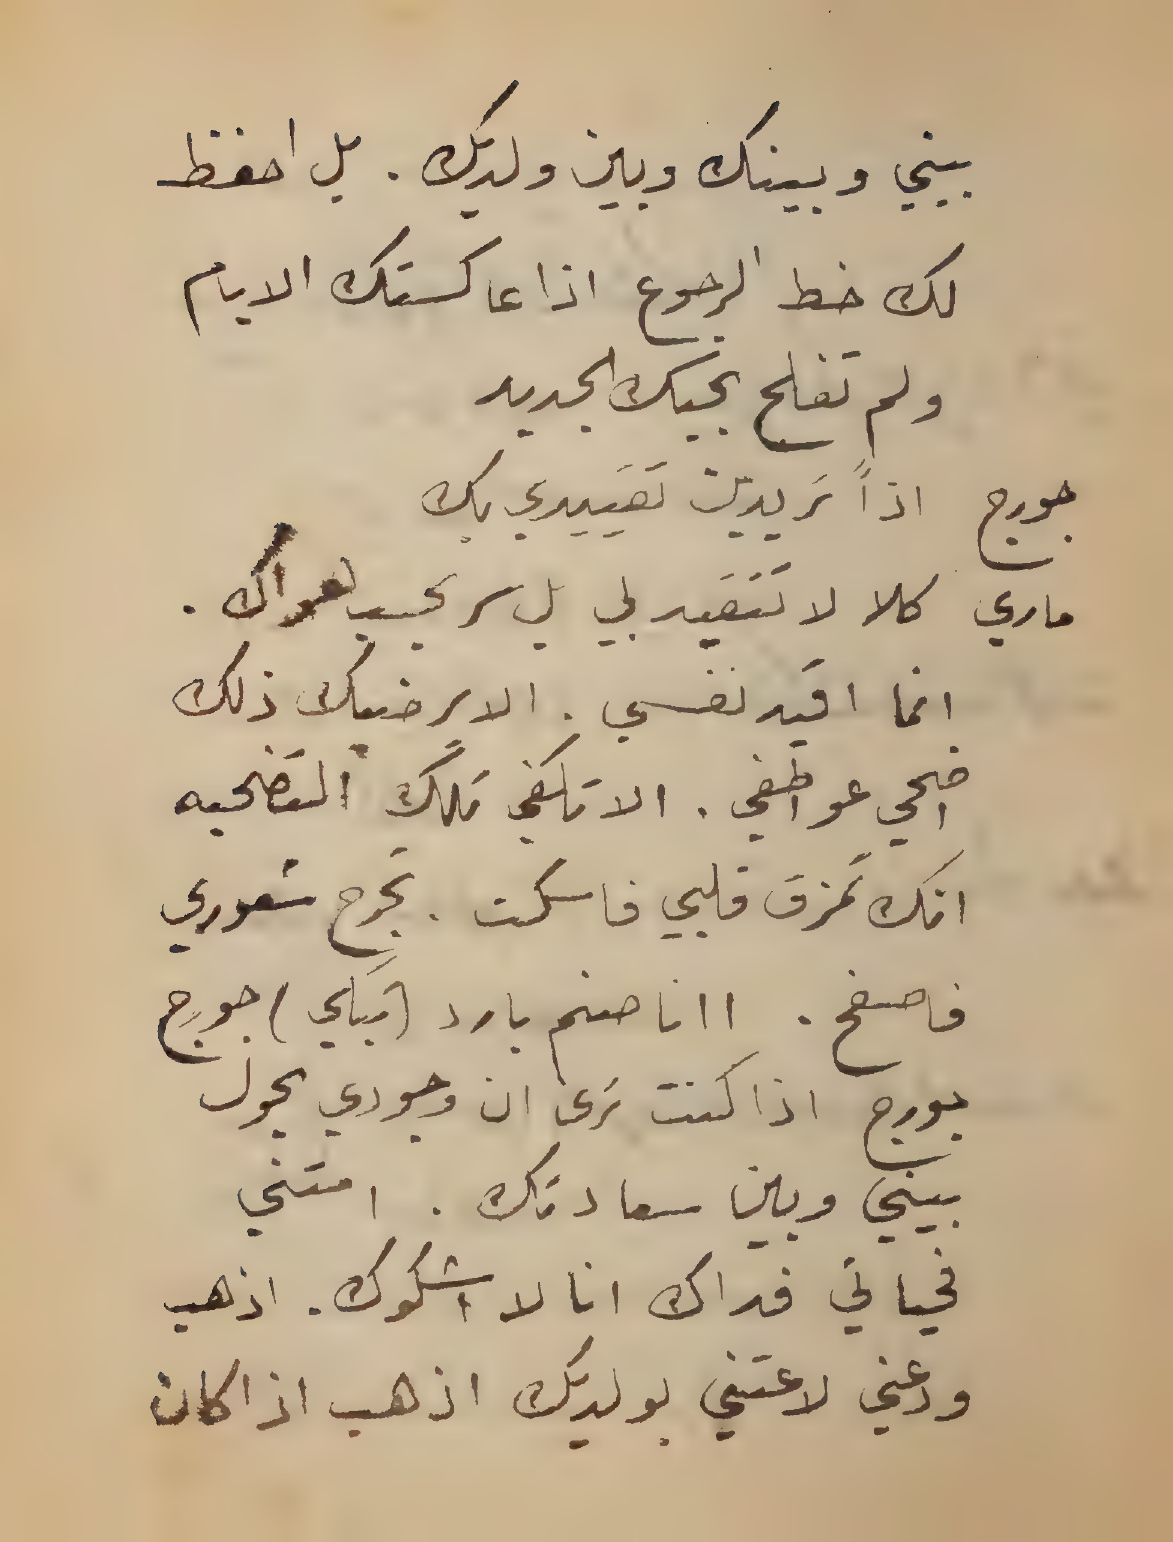 بيني وبينك وبين ولديك . بل احفظ
لك خط الرجوع اذا عاكستك الايام
ولم تفلح بحبك الجديد
جورج اذاً تريدين تقييدي بك
ماري كلا لا تتقيد بي بل سر بحسب هواك .
انما اقيد نفسي . الا يرضيك ذلك
اضحي عواطفي . الا تكفي تلك التضحيه
انك تمزق قلبي فاسكت . تجرح شعوري
فاصفح . اانا صنم بارد (تبكي) جورج
جورج اذا كنت ترى ان وجودي يحول
بيني وبين سعادتك . امتني
فحياتي فداك انا لا اشكوك . اذهب
ودعني لاعتني بولديك اذهب اذا كان